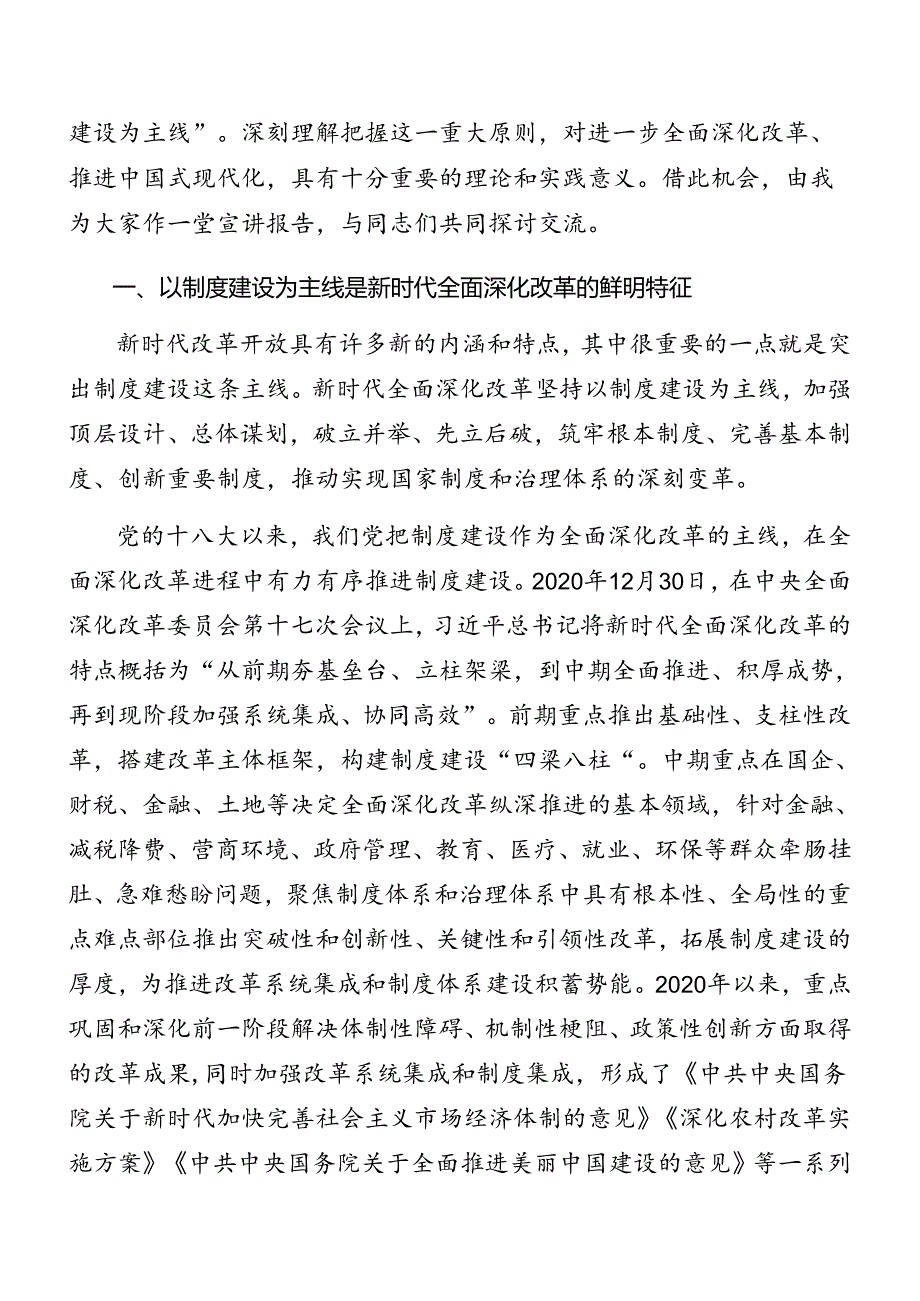 建设为主线”。深刻理解把握这一重大原则，对进一步全面深化改革、
推进中国式现代化，具有十分重要的理论和实践意义。借此机会，由我
为大家作一堂宣讲报告，与同志们共同探讨交流。
一、以制度建设为主线是新时代全面深化改革的鲜明特征
新时代改革开放具有许多新的内涵和特点，其中很重要的一点就是突
出制度建设这条主线。新时代全面深化改革坚持以制度建设为主线，加强
顶层设计、总体谋划，破立并举、先立后破，筑牢根本制度、完善基本制
度、创新重要制度，推动实现国家制度和治理体系的深刻变革。
党的十八大以来，我们党把制度建设作为全面深化改革的主线，在全
面深化改革进程中有力有序推进制度建设。2020年12月30日，在中央全面
深化改革委员会第十七次会议上，习近平总书记将新时代全面深化改革的
特点概括为“从前期夯基垒台、立柱架梁，到中期全面推进、积厚成势，
再到现阶段加强系统集成、协同高效”。前期重点推出基础性、支柱性改
革，搭建改革主体框架，构建制度建设“四梁八柱“。中期重点在国企、
财税、金融、土地等决定全面深化改革纵深推进的基本领域，针对金融、
减税降费、营商环境、政府管理、教育、医疗、就业、环保等群众牵肠挂
肚、急难愁盼问题，聚焦制度体系和治理体系中具有根本性、全局性的重
点难点部位推出突破性和创新性、关键性和引领性改革，拓展制度建设的
厚度，为推进改革系统集成和制度体系建设积蓄势能。2020年以来，重点
巩固和深化前一阶段解决体制性障碍、机制性梗阻、政策性创新方面取得
的改革成果,同时加强改革系统集成和制度集成，形成了《中共中央国务
院关于新时代加快完善社会主义市场经济体制的意见》《深化农村改革实
施方案》《中共中央国务院关于全面推进美丽中国建设的意见》等一系列